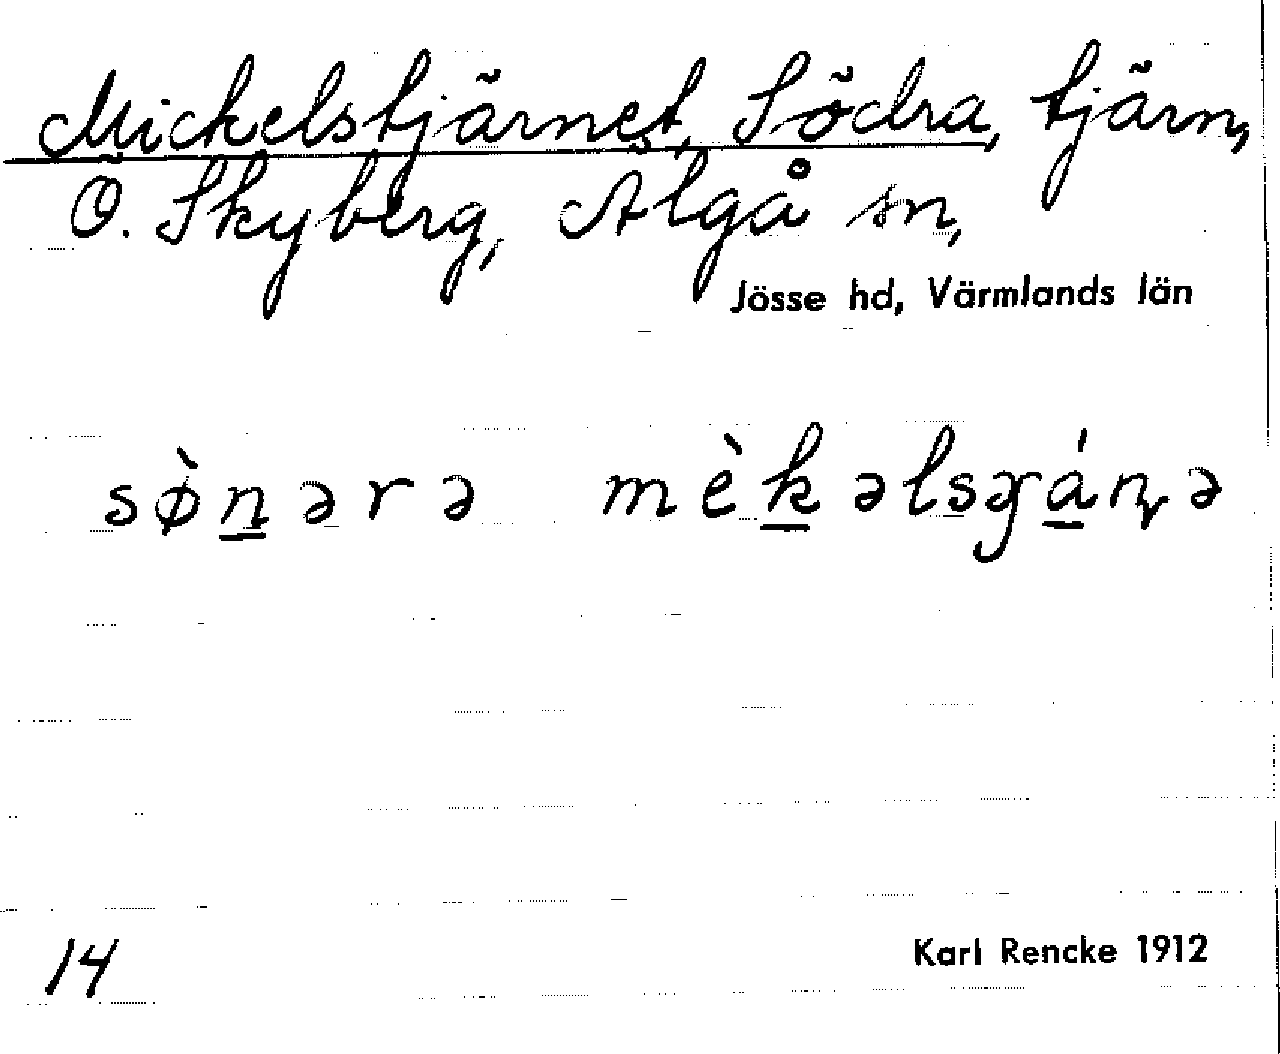 Mickelstjärnet, Södra, tjärn,
Ö. Skyberg, Älgå sn,
Jösse hd, Värmlands län
sø̀n̲ərə mèk̲əlsɟá̲ɳə
14
Karl Rencke 1912